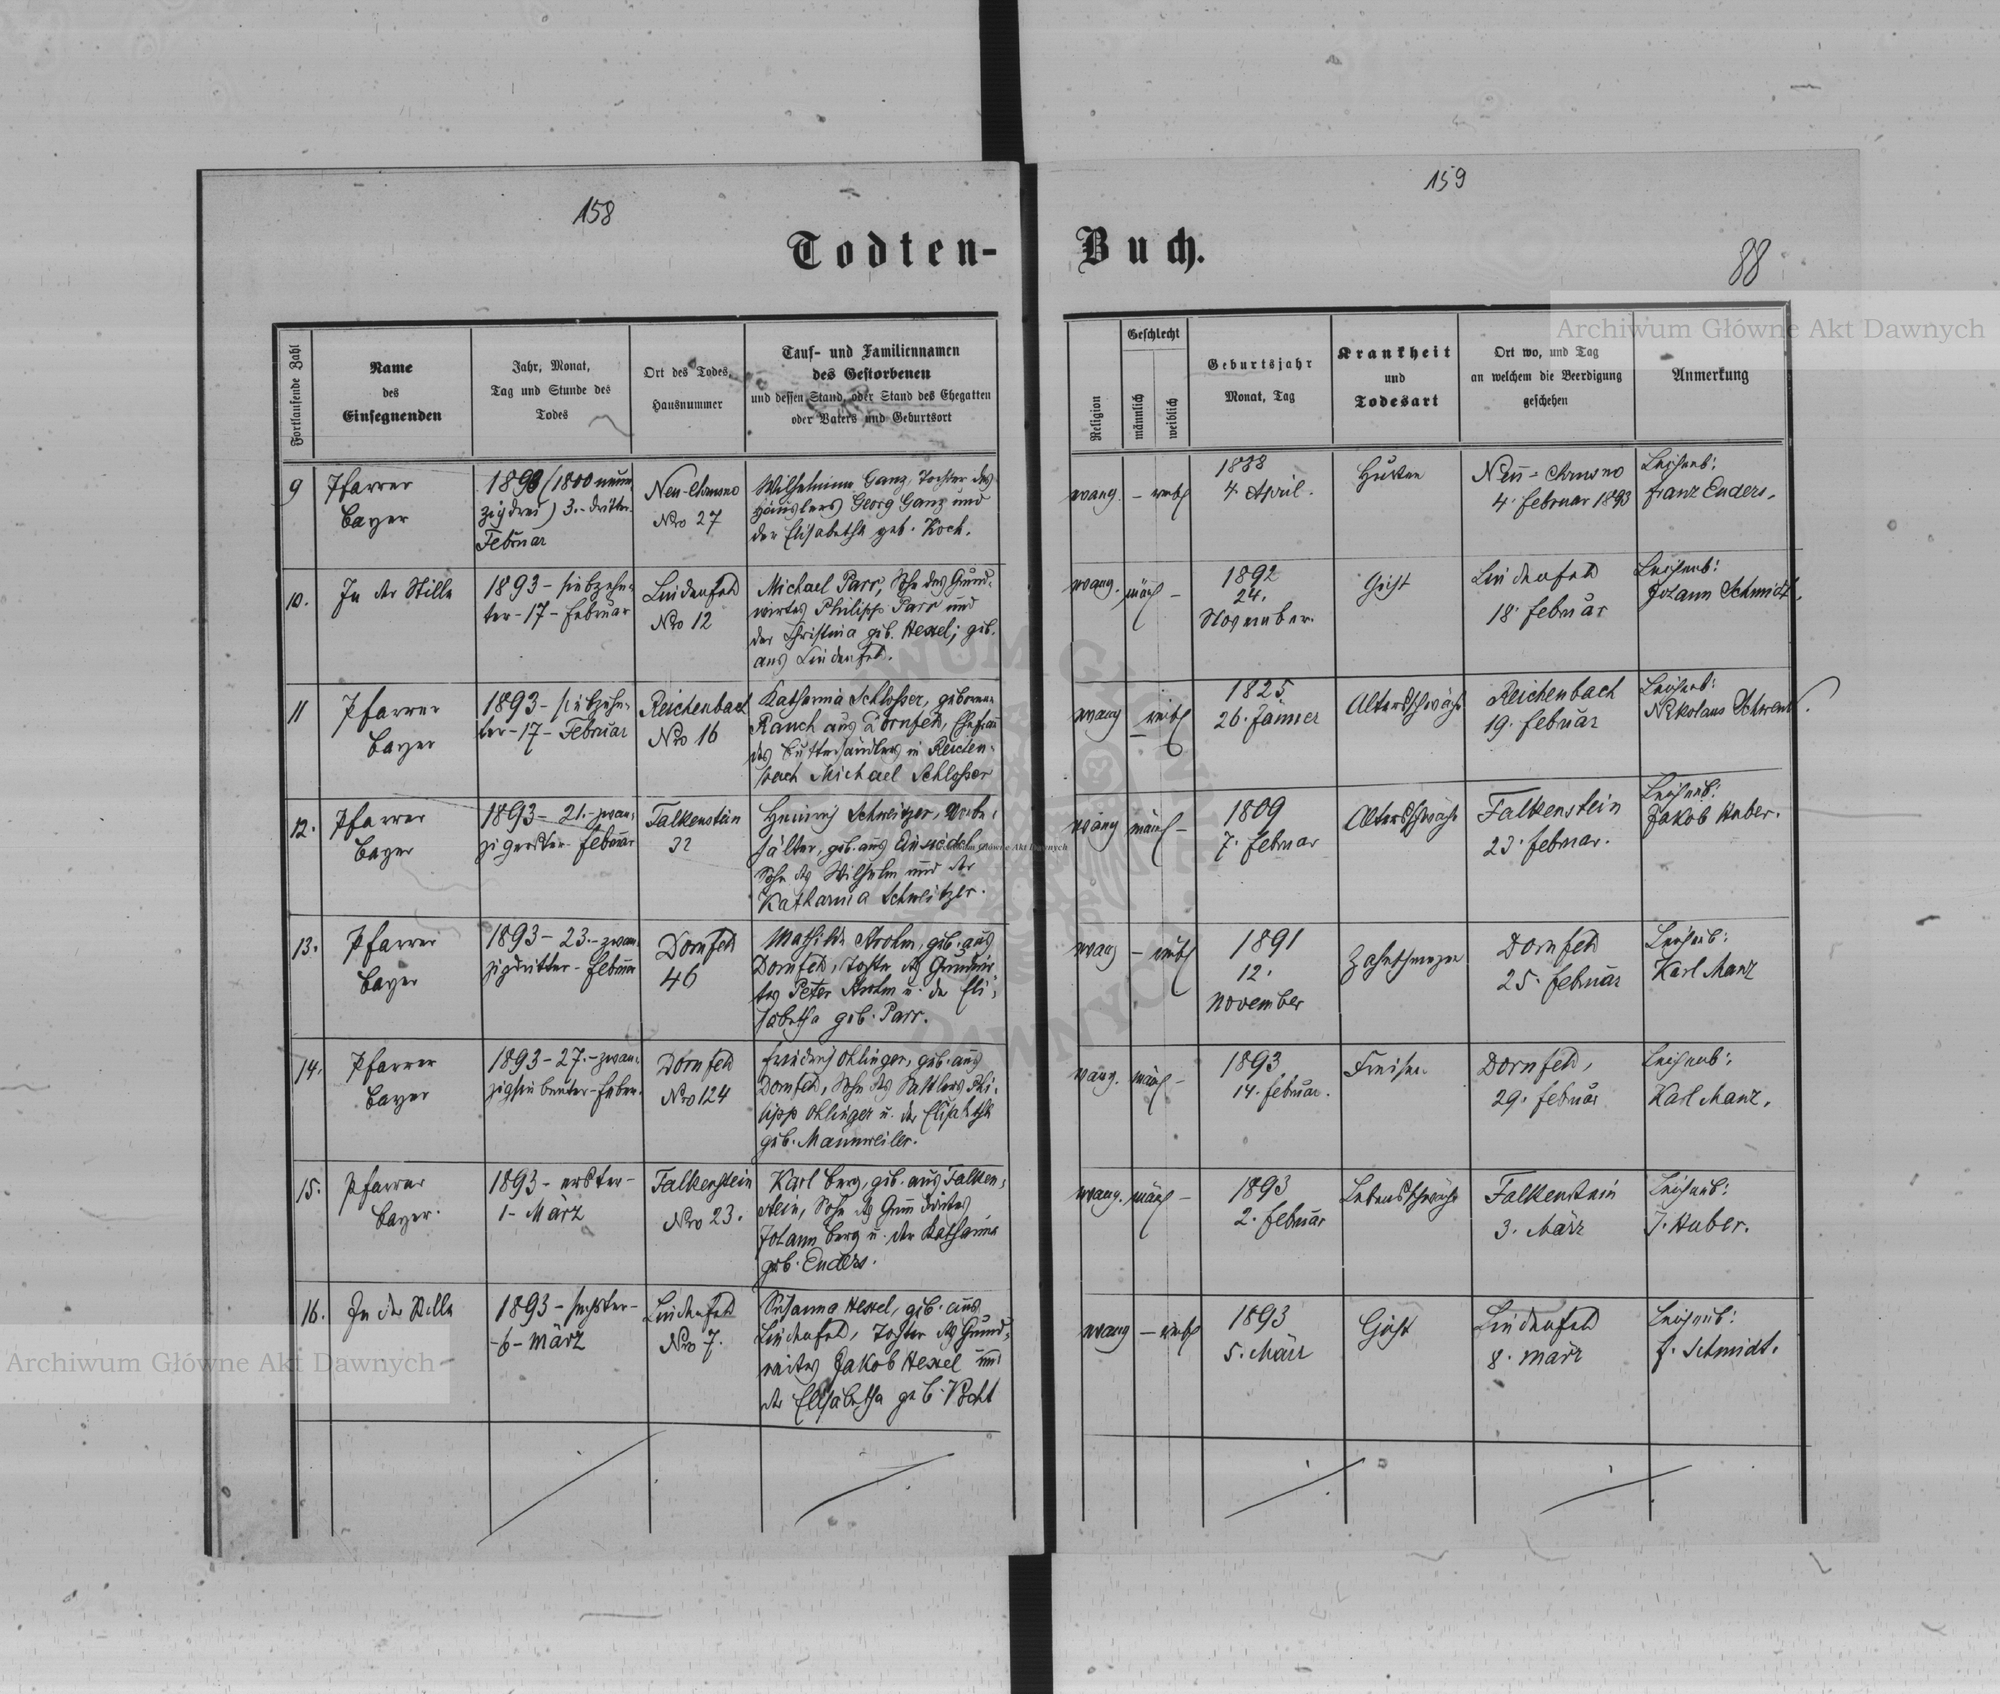 158
159
Todten-
Buch.
88
Archiwum Główne Akt Dawnych
Fortlaufende Zahl
Name
des
Einsegnenden
Jahr, Monat,
Tag und Stunde des
Todes
Ort des Todes,
Hausnummer
Tauf- und Familiennamen
des Gestorbenen
und dessen Stand, oder Stand des Ehegatten
oder Vaters und Geburtsort
Religion
Geschlecht
männlich
weiblich
Geburtsjahr
Monat, Tag
Krankheit
und
Todesart
Ort wo, und Tag
an welchem die Beerdigung
geschehen
Anmerkung
9
Pfarrer
Bayer
1893 (1800 neun
zig drei) 3.- dritter
Februar
Neu-Chrusno
Nro 27
Wilhelmine Ganz, Tochter des
Häuslers Georg Ganz und
der Elisabetha geb. Koch.
evang.
– weibl
4. April.
Husten
Neu-Chrusno
4. Februar 1893
Leichenb:
Franz Enders.
10.
In der Stille
1893 - siebzehn-
ter - 17 - Februar
Lindenfeld
Nro 12
Michael Parr, Sohn des Grund-
wirtes Philipp Parr und
der Christina geb. Hexel; geb.
aus Lindenfeld.
evang.
männl –
1892
24.
November.
Gicht
Lindenfeld
18. Februar
Leichenb:
Johann Schmidt.
11
Pfarrer
Bayer
1893 - siebzehn-
ter - 17 - Februar
Reichenbach
Nro 16
Katharina Schlosser, geborene
Rauch aus Dornfeld, Ehefrau
des Butterhändlers in Reichen-
bach Michael Schlosser
evang
– weibl
1825
26. Jänner
Altersschwäche
Reichenbach
19. Februar
Leichenb:
Nikolaus
12.
Pfarrer
Bayer
1893 - 21. - zwan-
zigerster - Februar
Falkenstein
32
Heinrich Schweitzer, Vorbe-
hälter, geb. aus Einsiedel
Sohn des Wilhelm und der
Katharina Schweitzer.
Archiwum Główne Akt Dawnych
evang
männl –
1809
7. Februar
Altersschwäche
Falkenstein
23. Februar.
Leichenb:
Jakob Huber.
13.
Pfarrer
Bayer
1893 - 23. - zwan-
zigdritter - Februar
Dornfeld
46
Mathilde Krohm, geb. aus
Dornfeld, Tochter des Grundwir-
tes Peter Krohm u. der Eli-
sabetha geb. Parr.
evang
– weibl
1891
12.
November
Zahnschmerzen
Dornfeld
25. Februar
Leichenb:
Karl Manz
14.
Pfarrer
Bayer
1893 - 27. - zwan-
zigsiebenter - Feber.
Dornfeld
Nro 124
Friedrich Ohlinger, geb. aus
Dornfeld, Sohn des Sattlers Phi-
lipp Ohlinger u. der Elisabetha
geb. Mannweiler.
evang.
männl –
1893
14. Februar.
Freisen
Dornfeld,
29. Februar
Leichenb:
Karl Manz.
15.
Pfarrer
Bayer.
1893 - erster -
1 - März
Falkenstein
Nro 23.
Karl Berg, geb. aus Falken-
stein, Sohn des Grundwirtes
Johann Berg u. der Katharina
geb. Enders.
evang.
männl –
1893
2. Februar
Lebensschwäche
Falkenstein
3. März
Leichenb:
J. Huber.
16.
In der Stille
1893 - sechster -
- 6 - März
Lindenfeld
Nro 7.
Susanna Hexel, geb. aus
Lindenfeld, Tochter des Grund-
wirtes Jakob Hexel und
der Elisabetha geb.
evang
– weibl
1893
5. März
Gicht
Lindenfeld
8. März
Leichenb:
J. Schmidt.
Archiwum Główne Akt Dawnych